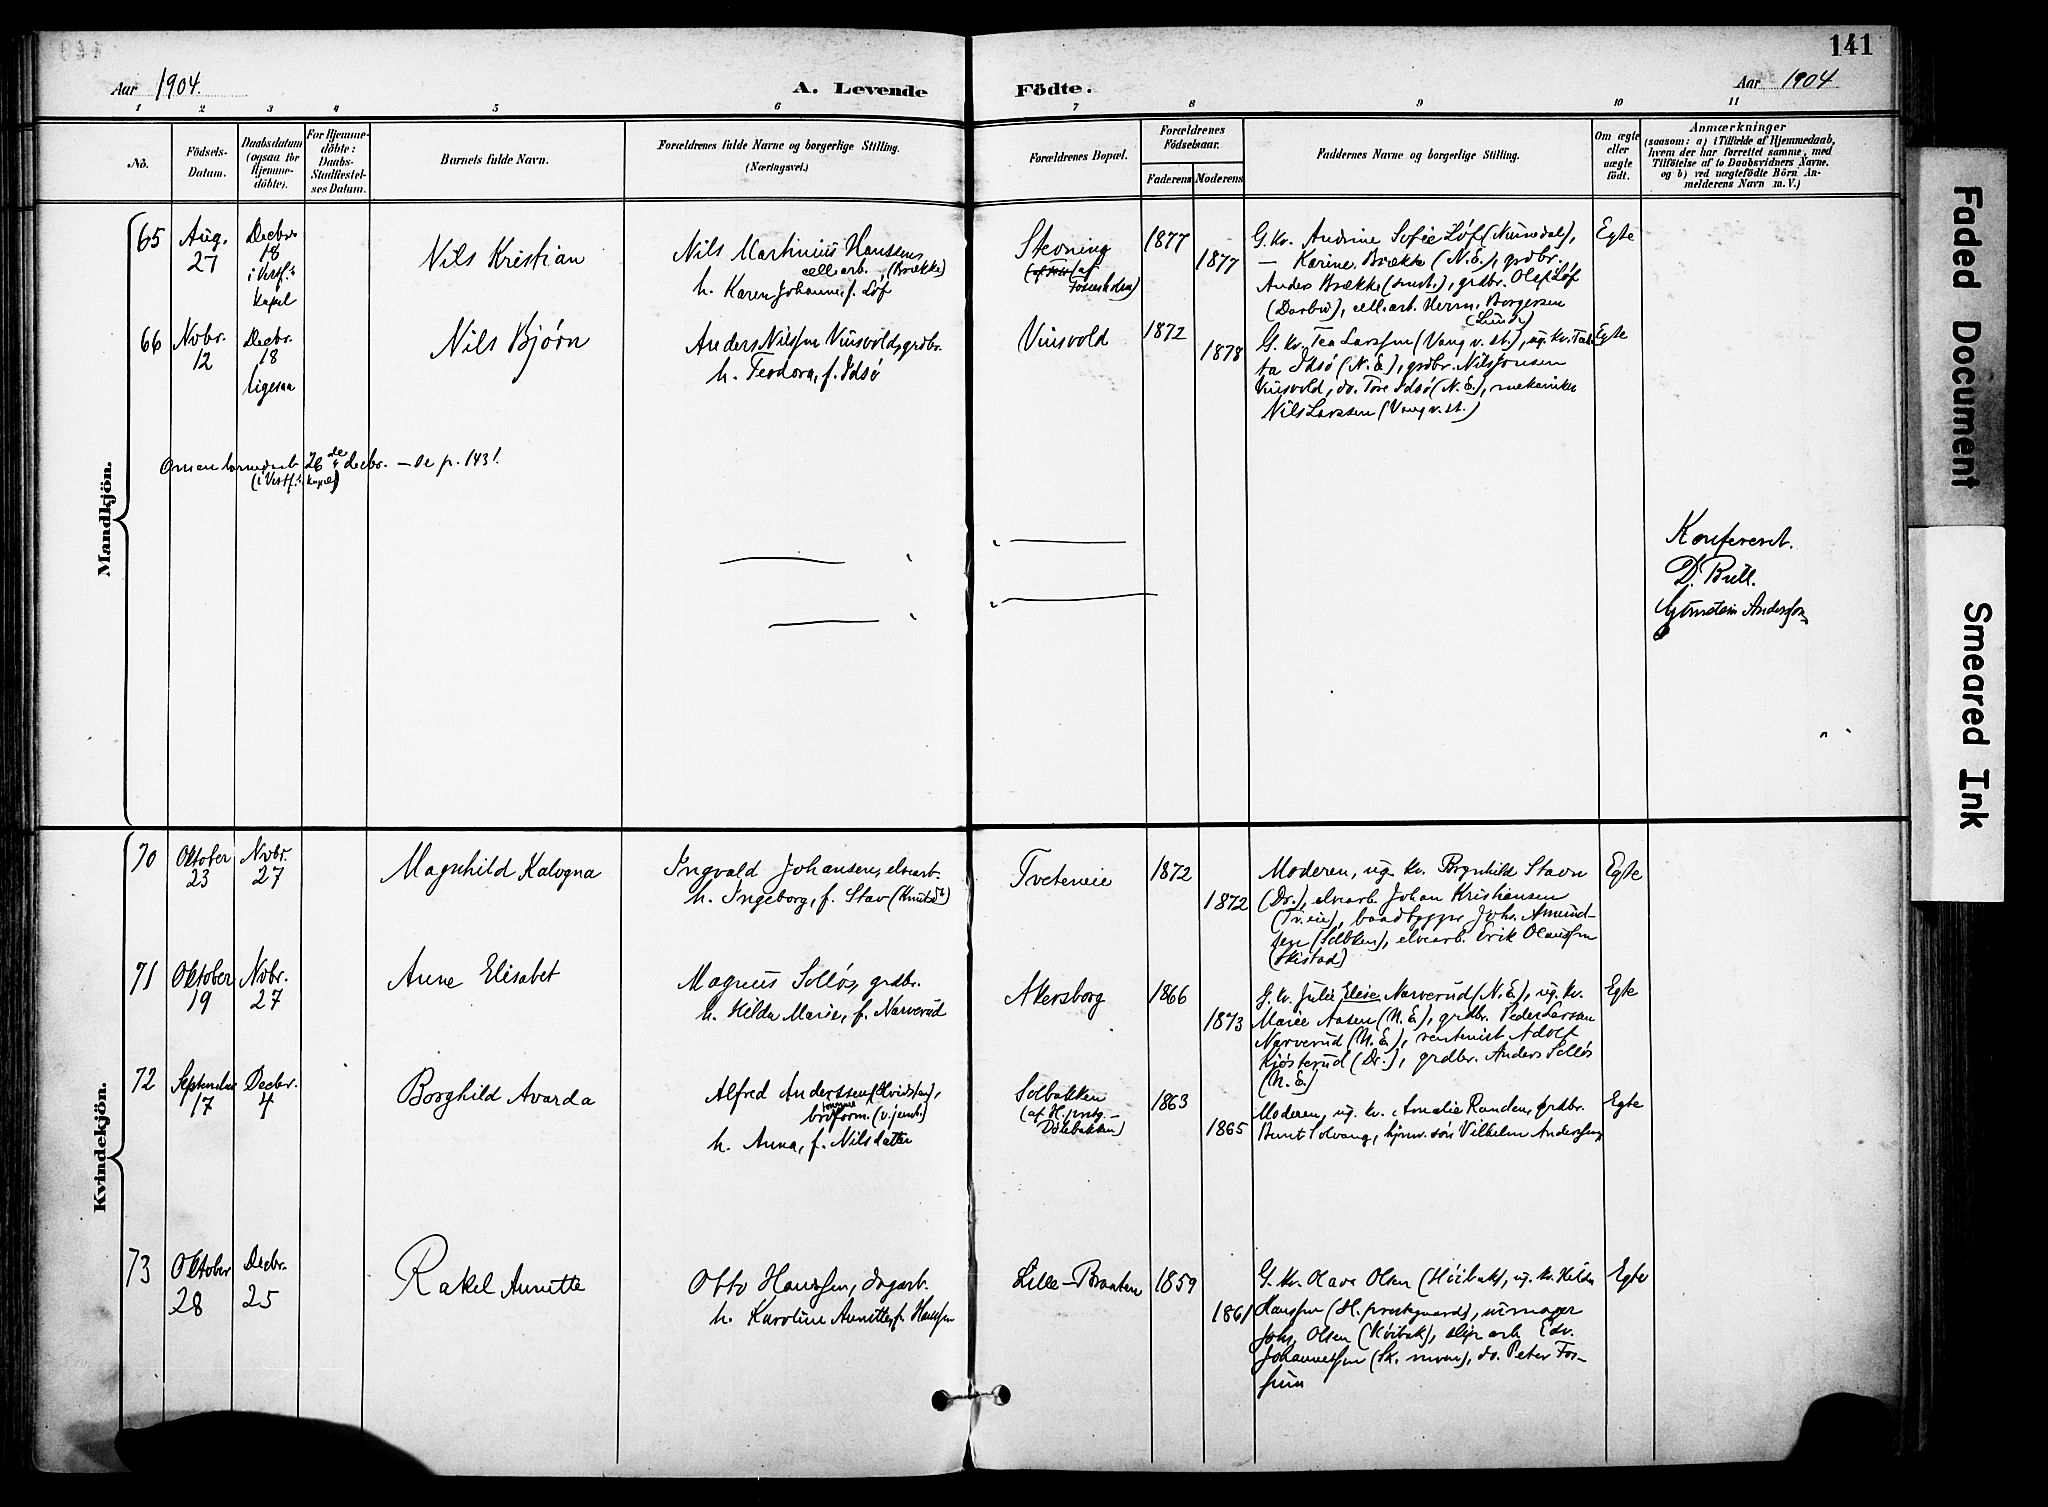 141
Aar 1904.
A. Levende Födte.
Aar 1904
1 2 3 4 5 6 7 8 9 10 11
No.
Födsels-
Datum.
Daabsdatum
(ogsaa for
Hjemme-
döbte).
For Hjemme-
döbte:
Daabs-
Stadfæstel-
ses Datum.
Barnets fulde Navn.
Forældrenes fulde Navne og borgerlige Stilling.
(Næringsvei.)
Forældrenes Bopæl.
Forældrenes
Födselsaar.
Faderens Moderens
Faddernes Navne og borgerlige Stilling.
Om ægte
eller
uægte
födt.
Anmærkninger
(saasom: a) i Tilfælde af Hjemmedaab,
hvem der har forrettet samme, med
Tilföielse af to Daabsvidners Navne.
og b) ved uægtefödte Börn An-
melderens Navn m. V.)
Mandkjön.
65
Aug.
27
Decbr.
18
i Vestf.s
kapel
Nils Kristian
Nils Martinius Hanssen,
cell.arb. (Brække)
h. Karen Johanne, f. Løf
Stevning
(af
Fossesholm)
1877
1877
G. kv. Andrine Sofie Løf (Numedal),
— Karine Brække (N.E.), grdbr.
Anders Brække (smst.), grdbr. Olaf Løf
(Darbu), cell.arb. Herm. Borgersen
(Lunde)
Egte
66
Novbr.
12
Decbr.
18
ligesaa
Nils Bjørn
Anders Nilssen Vinsvold, grdbr.
h. Teodora, f. Idsø
Vinsvold
1872
1878
G. kv. Tea Larssen (Vang v. st.), ug. kv.
Idsø (N.E.), grdbr. Nils Jonsen
Vinsvold, do. Tore Idsø (N.E.), mekaniker
Nils Larssen (Vang v. st.)
Egte
Om en barnedaab 26de decbr. — se p. 143!
(i Vestf.s kapel)
Konfereret.
D. Bull.
Anderssen
Kvindekjön.
70
Oktober
23
Nvbr.
27
Magnhild Kalogna
Ingvald Johansen, elvearb.
h. Ingeborg, f. Stav
Tveteneie
1872
1872
Moderen, ug. kv. Borgnhild Stavn
(Dr.), elvearb. Johan Kristiansen
(Tv.eie), baadbygger Johs. Amund-
sen (Solbken), elvearb. Erik Olaussen
(Skistad)
Egte
71
Oktober
19
Nvbr.
27
Anne Elisabet
Magnus Solløs, grdbr.
h. Hilda Marie, f. Narverud
Akersborg
1866
1873
G. kv. Julie Elise Narverud (N.E.), ug. kv.
Marie Aasen (N.E.), grdbr. Peder Larsen
Narverud (N.E.), rentenist Adolf
Kjøsterud (Dr.), grdbr. Anders Solløs
(N.E.)
Egte
72
September
17
Decbr.
4
Borghild Avarda
Alfred Anderssen (Hvidsten),
broform. (v. jernb.)
h. Anna, f. Nilsdatter
Solbakken
(af H. prstg.—
Dølebakken)
1863
1865
Moderen, ug. kv. Amalie Randen, grdbr.
Bernt Solvang, hjmv. søn Vilhelm Anderssen
Egte
73
Oktober
28
Decbr.
25
Rakel Annette
Otto Hanssen, dagarb.
h. Karoline Annette, f. Hanssen
Lille-Braaten
1859
1861
G. kv. Olava Olsen (Høibak), ug. kv. Hilda
Hanssen (H. prestgaard),
Johs. Olsen (Høibak), slip.arb. Edv.
Johannessen (Sk. moen), do. Peter Fos-
sum
Egte
Faded Document
Smeared Ink